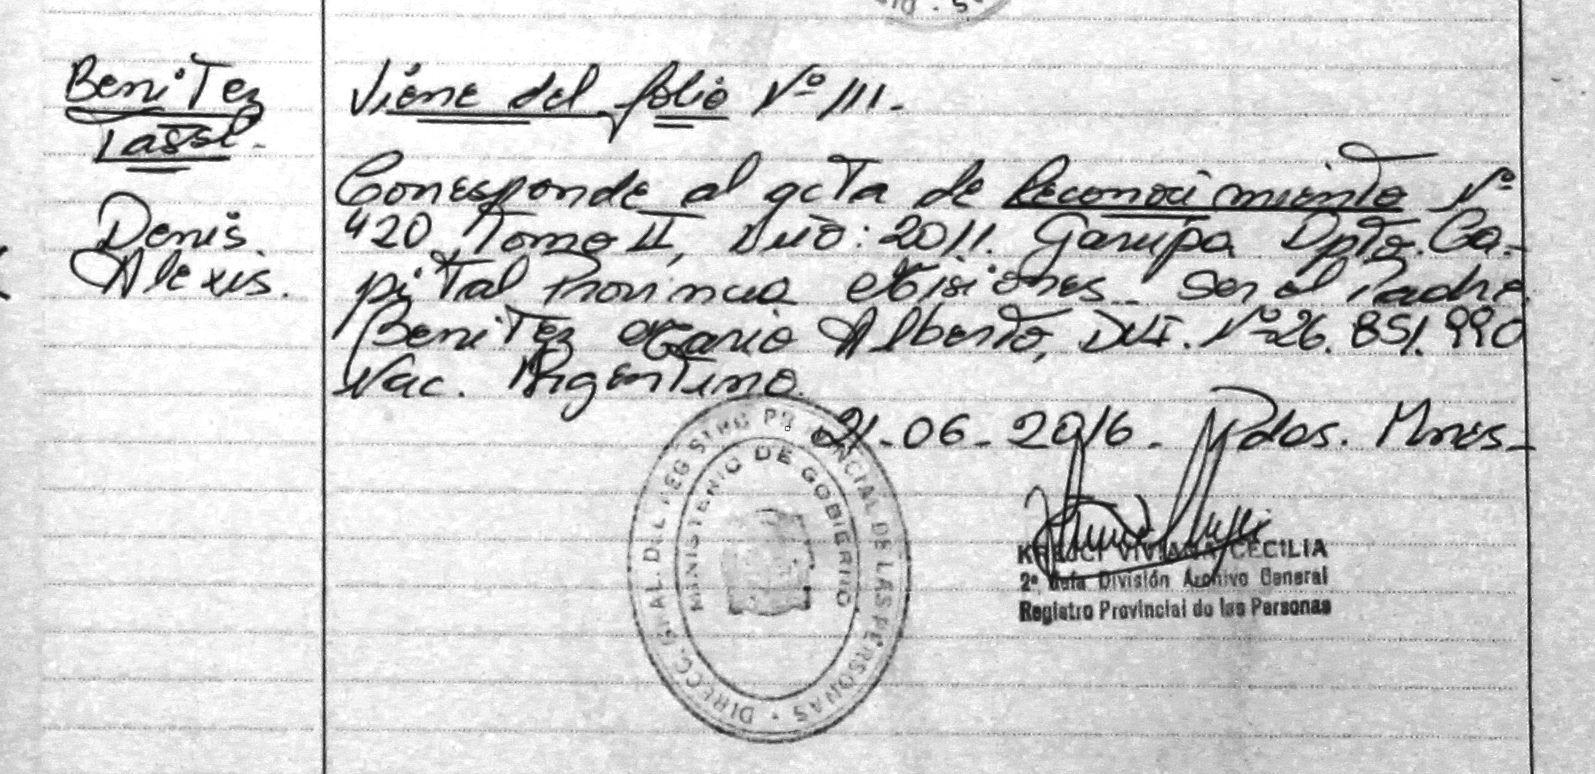 Benitez
Tassi.
Denis
Alexis.
Viene del folio Nº 111.
Corresponde al acta de Reconocimiento Nº
420 Tomo II, Año: 2011. Garupa Dpto. Ca-
pital Provincia Misiones. Ser el Padre
Benitez Mario Alberto, DNI. Nº 26.851.990
Nac. Argentino.
21-06-2016. Pdas. Mnes-
DIRECC. GRAL. DEL REGISTRO PROVINCIAL DE LAS PERSONAS
MINISTERIO DE GOBIERNO
KREJCI VIVIANA CECILIA
2º Jefa División Archivo General
Registro Provincial de las Personas